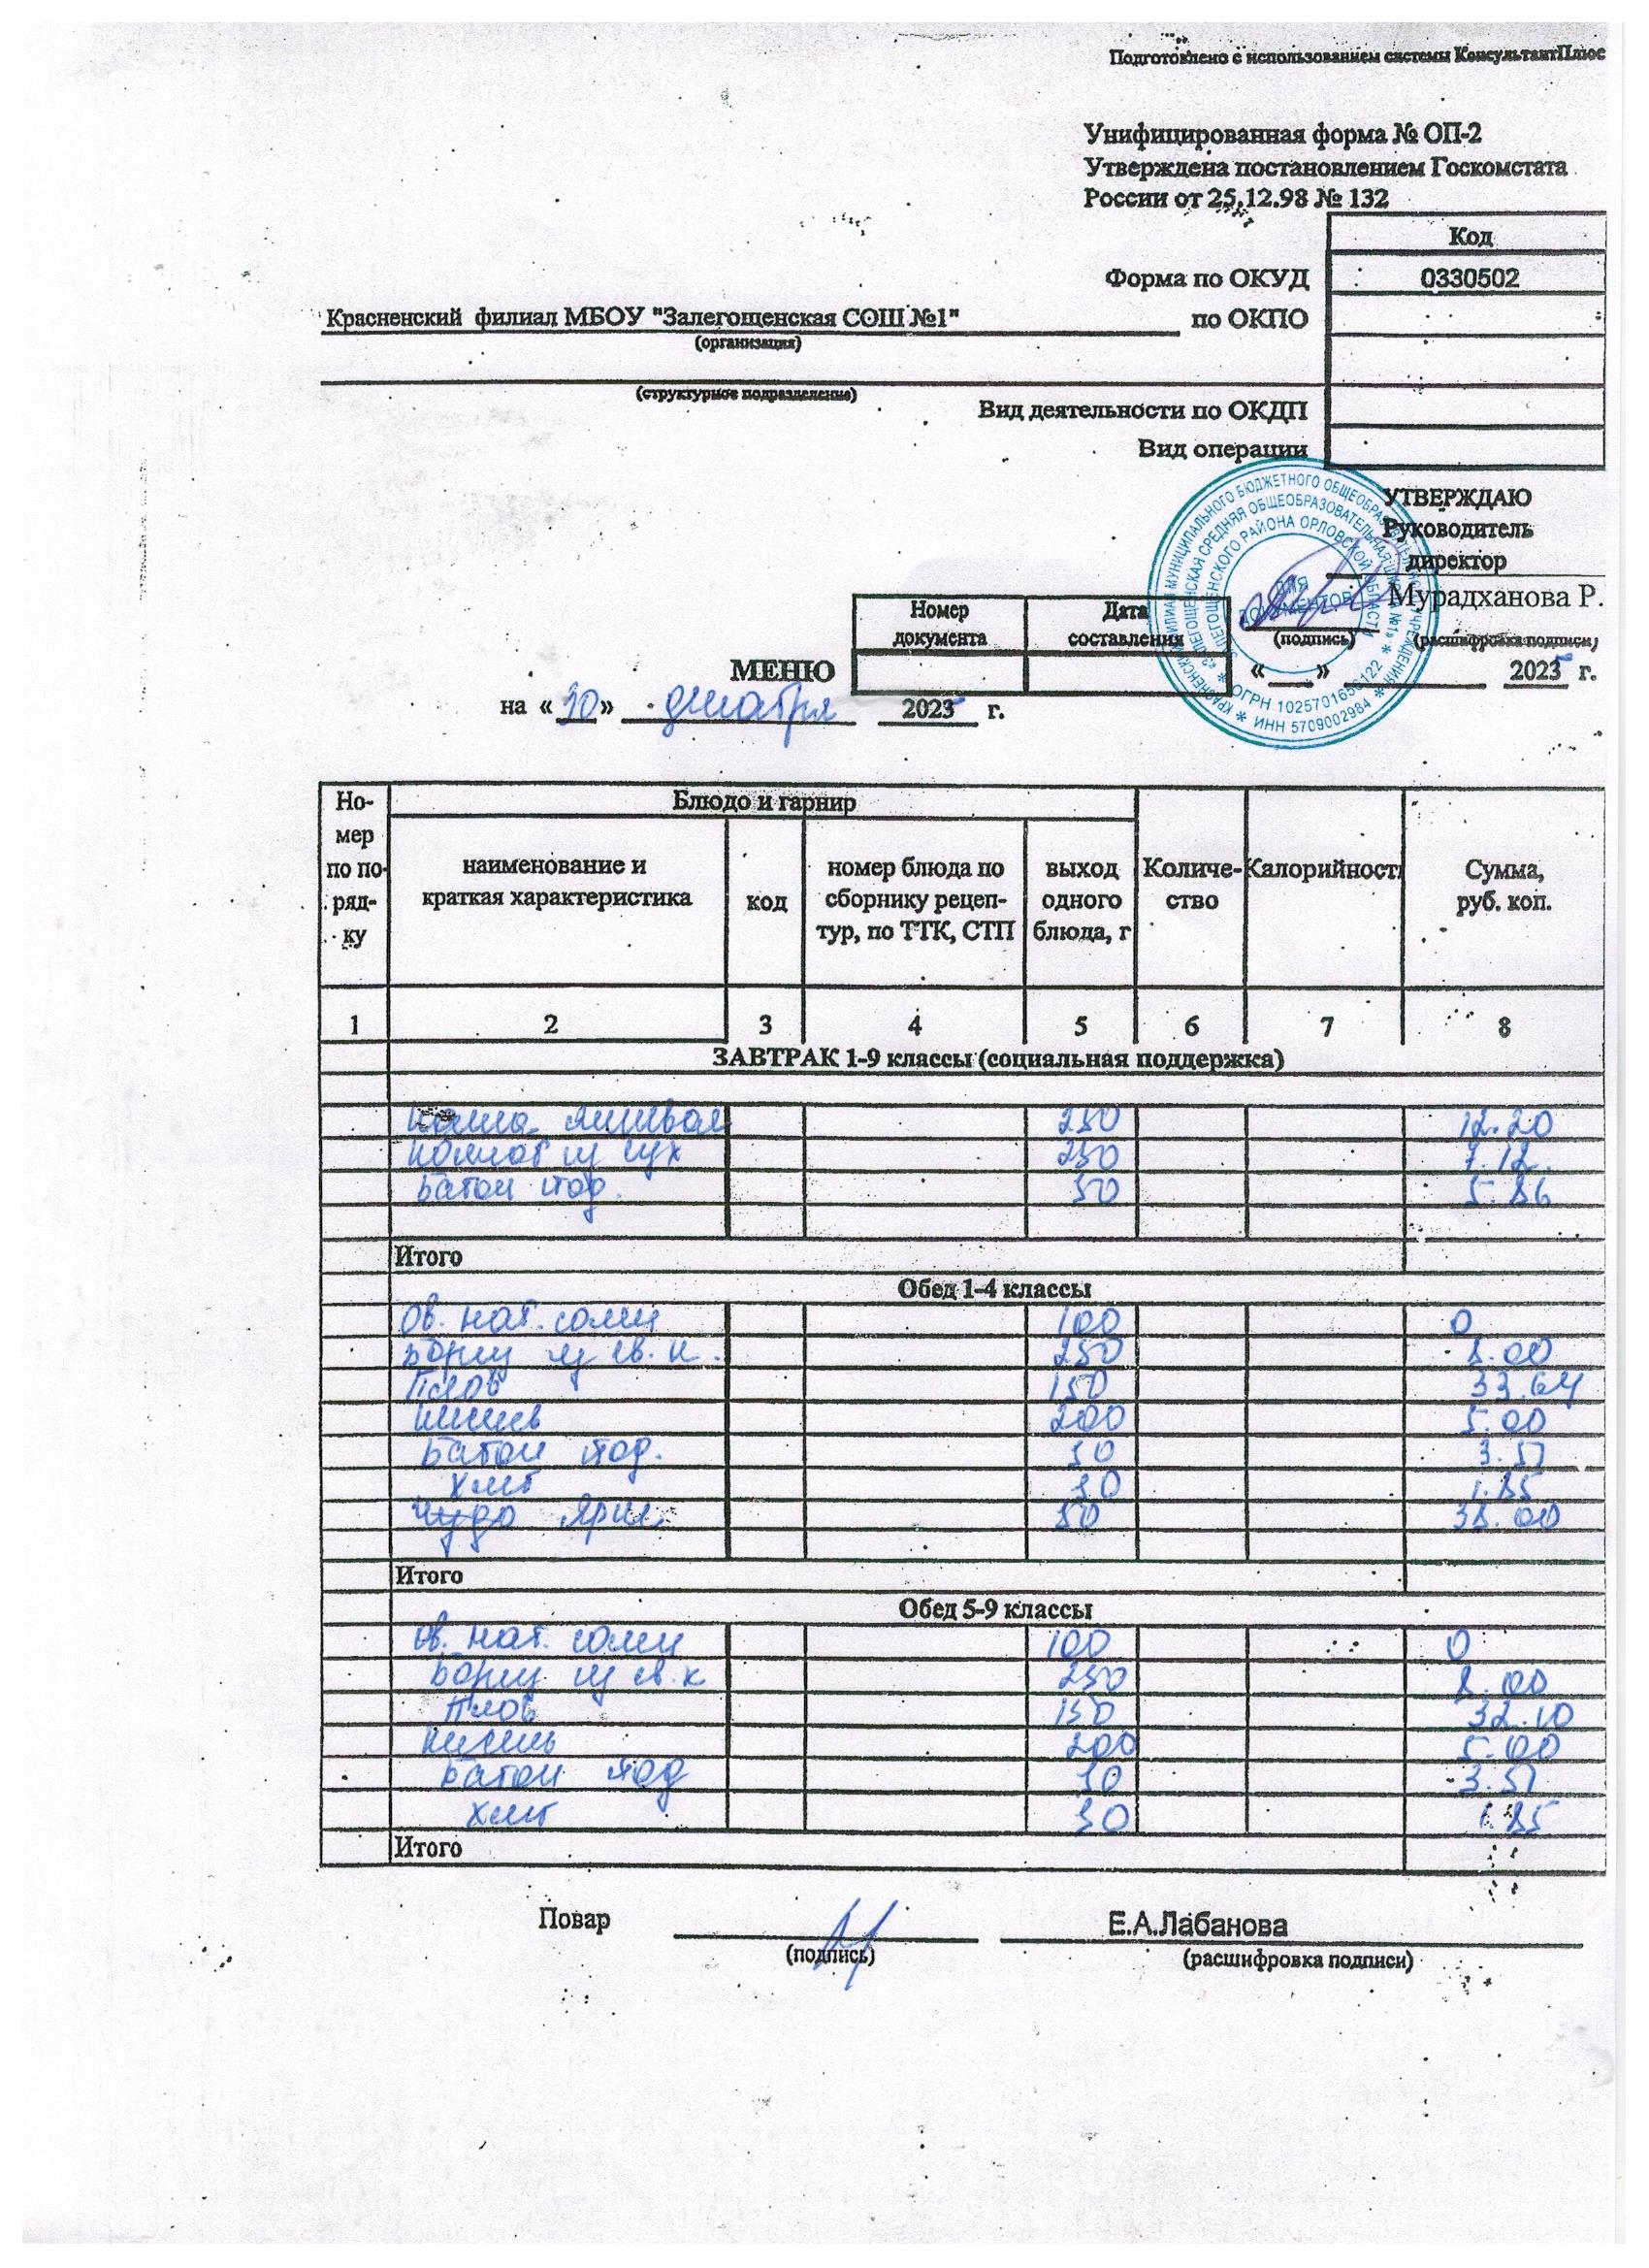 Подготовлено с использованием системы КонсультантПлюс
Унифицированная форма № ОП-2
Утверждена постановлением Госкомстата
России от 25.12.98 № 132
Код
Форма по ОКУД 0330502
Красненский филиал МБОУ "Залегощенская СОШ №1" по ОКПО
(организация)
(структурное подразделение)
Вид деятельности по ОКДП
Вид операции
УТВЕРЖДАЮ
Руководитель
директор
Мурадханова Р.
(подпись) (расшифровка подписи)
« » 2025 г.
ДЛЯ ДОКУМЕНТОВ
ОГРН ИНН 5709002984
Номер документа Дата составления
МЕНЮ
на « » декабря 2025 г.
Но-
мер
по по-
ряд-
ку
Блюдо и гарнир
наименование и
краткая характеристика
код
номер блюда по
сборнику рецеп-
тур, по ТТК, СТП
выход
одного
блюда, г
Количе-
ство
Калорийност
Сумма,
руб. коп.
1 2 3 4 5 6 7 8
ЗАВТРАК 1-9 классы (социальная поддержка)
Каша 250 12.20
Компот из сух 250 7.12
Батон йод. 50 5.86
Итого
Обед 1-4 классы
Ов. нат. солен 100 0
Борщ из св. к. 250 8.00
Плов 150 33.64
Кисель 200 5.00
Батон йод. 30 3.51
Хлеб 30 1.85
Чудо 38.00
Итого
Обед 5-9 классы
Ов. нат. солен 100 0
Борщ из св. к 250 8.00
Плов 150 32.10
Кисель 200 5.00
Батон йод 30 3.51
Хлеб 30 1.85
Итого
Повар Е.А.Лабанова
(подпись) (расшифровка подписи)